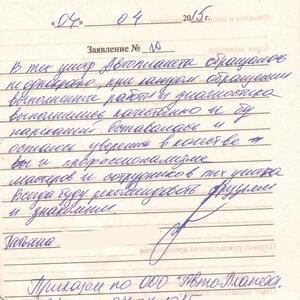 «04» 04 2015 г.
Заявление № 10
В тех центр Автопланета обращаюсь
неоднократно, при каждом обращении
выполнение работ и диагностика
выполнялись качественно и
нареканий оставалась и
осталась уверена в качестве
и профессионализме
мастеров и сотрудников тех центра
Всегда буду рекомендовать друзьям
и знакомым
Татьяна
Приказом по ООО "АвтоПланета"